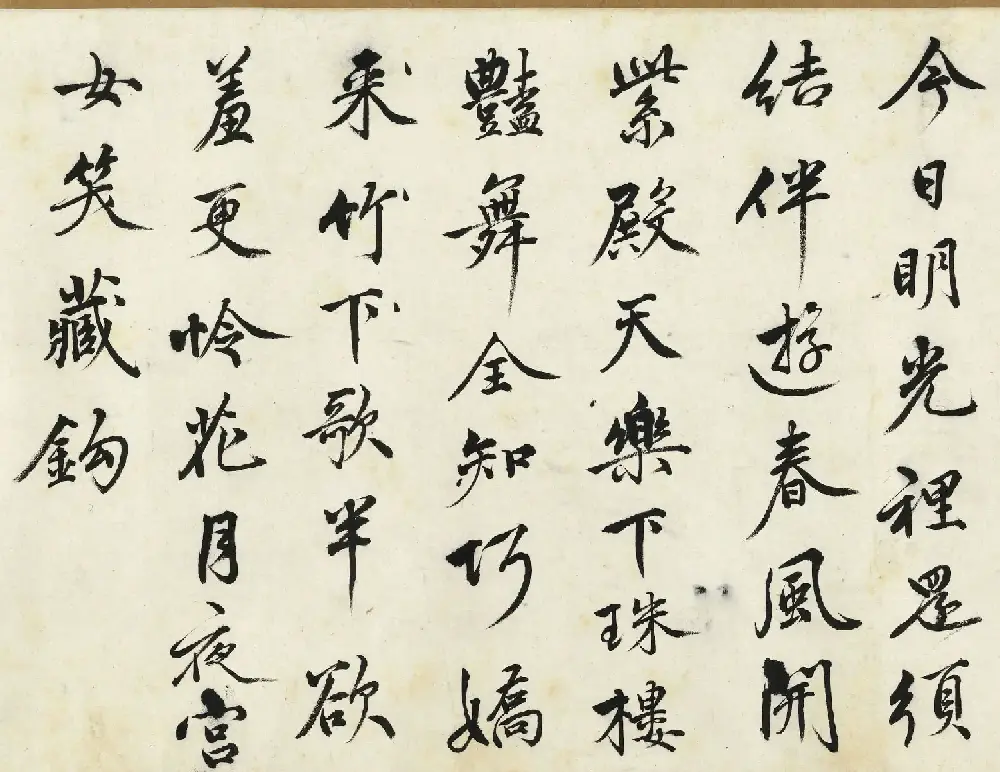 今日明光裡還須
結伴遊春風開
紫殿天樂下珠樓
豔舞全知巧嬌
来竹下歌半欲
羞更怜花月夜宮
女笑藏鈎